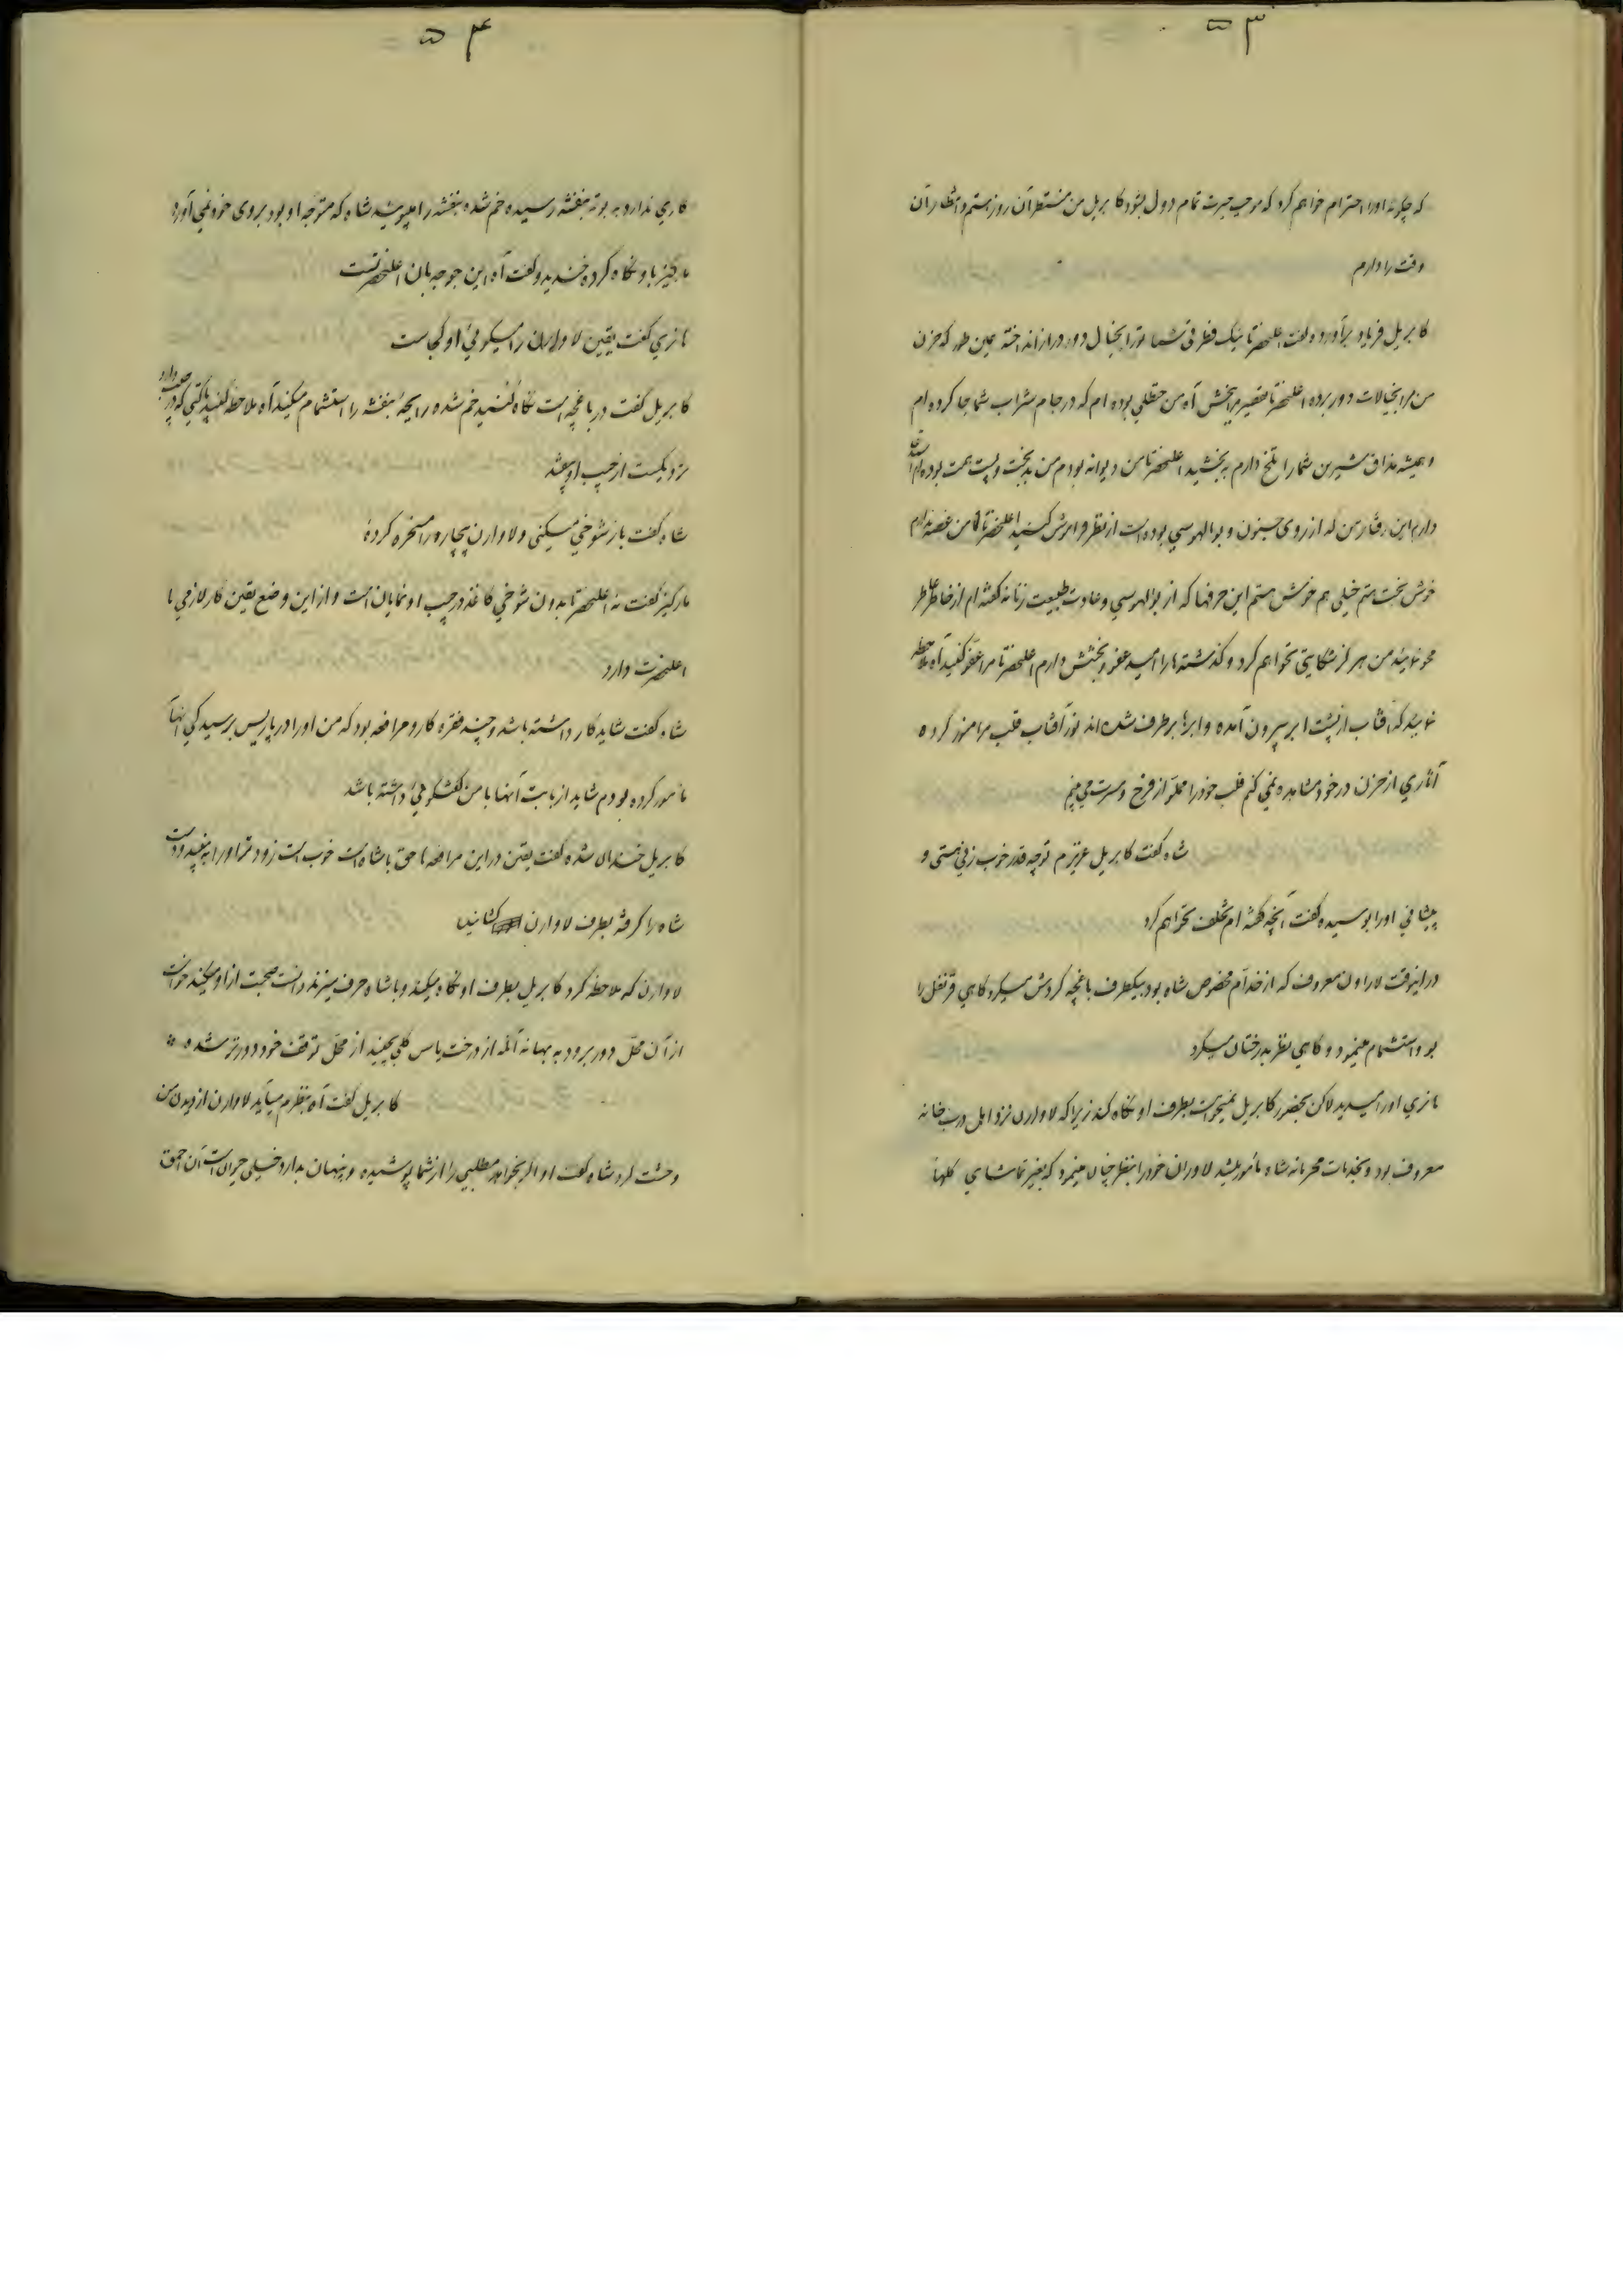 ۵۳
که چگونه او را احترام خواهم کرد که موجب حیرت تمام دول بشود کابریل من منتظر آن روز هستم و انتظار آن
وقت را دارم
کابریل فریاد برآورده گفت اعلیحضرتا نیک فطرتی شما تو را بخیال دور دراز انداخته همین طور که حزن
من مرا بخیالات دور برده اعلیحضرتا تقصیر مرا ببخش آه من حنظلی بوده ام که در جام شراب شما جا کرده ام
و همیشه مذاق شیرین شما را تلخ دارم ببخشید اعلیحضرتا من دیوانه بودم من بدبخت و پست همت بوده ام
دارم این رفتار من که از روی جنون و بوالهوسی بوده است از نظر فراموش کنید اعلیحضرتا من غصه ندارم
خوش بخت هستم خیلی هم خوش هستم این حرفها که از بوالهوسی و عادت طبیعت زنانه گفته ام از خاطر
محو نمائید من هرگز شکایتی نخواهم کرد و گذشته ها را امید عفو و بخشش دارم اعلیحضرتا مرا عفو کنید آه ملاحظه
نمائید که آفتاب از پشت ابر بیرون آمده و ابرها برطرف شده اند نور آفتاب قلب مرا منور کرده
آثاری از حزن در خود مشاهده نمی کنم قلب خود را مملو از فرح و مسرت می بینم
شاه گفت کابریل عزیزم تو چه قدر خوب زنی هستی و
پیشانی او را بوسیده گفت آنچه گفته ام تخلف نخواهم کرد
در اینوقت لاوارن معروف که از خدام مخصوص شاه بود بیکطرف باغچه گردش میکرد گاهی قرنفل را
بو و استشمام مینمود و گاهی نظر بدرختان میکرد
هانری او را میدید لاکن بحضور کابریل نمیخواست بطرف او نگاه کند زیرا که لاوارن نزد اهل درب خانه
معروف بود و بخدمات محرمانه شاه مأمور میشد لاوران خود را بنظر چنان مینمود که بغیر تماشای گلها
۵۴
کاری ندارد به بوته بنفشه رسیده خم شده بنفشه را میبوسید شاه که متوجه او بود بروی خود نمی آورد
مارکیز باو نگاه کرده خندید و گفت آه این جوجه بان اعلیحضرتست
هانری گفت یقین لاوارن را میگوئی او کجاست
کابریل گفت در باغچه است نگاه کنید خم شده رایحه بنفشه را استشمام میکند آه ملاحظه کنید پاکتی که در جیب دارد
نزدیکست از جیب او بیفتد
شاه گفت باز شوخی میکنی و لاوارن بیچاره را مسخره کرده
مارکیز گفت نه اعلیحضرتا بدون شوخی کاغذ در جیب او نمایان است و از این وضع یقین کار لازمی با
اعلیحضرت دارد
شاه گفت شاید کار داشته باشد و چند فقره کار و مرافعه بود که من او را در پاریس برسیدگی آنها
مأمور کرده بودم شاید از بابت آنها با من گفتگوئی داشته باشد
کابریل خندان شده گفت یقین در این مرافعه ها حق با شاه است خوب است زودتر او را به بینید و دست
شاه را گرفته بطرف لاوارن کشانید
لاوارن که ملاحظه کرد کابریل بطرف او نگاه میکند و با شاه حرف میزند دانست صحبت از او میکنند خواست
از آن محل دور برود به بهانه آنکه از درخت یاس گلی بچیند از محل توقف خود دورتر شده
کابریل گفت آه بنظرم میآید لاوارن از دیدن من
وحشت کرد شاه گفت او اگر بخواهد مطلبی را از شما پوشیده و پنهان بدارد خیلی حیران است آن احمق